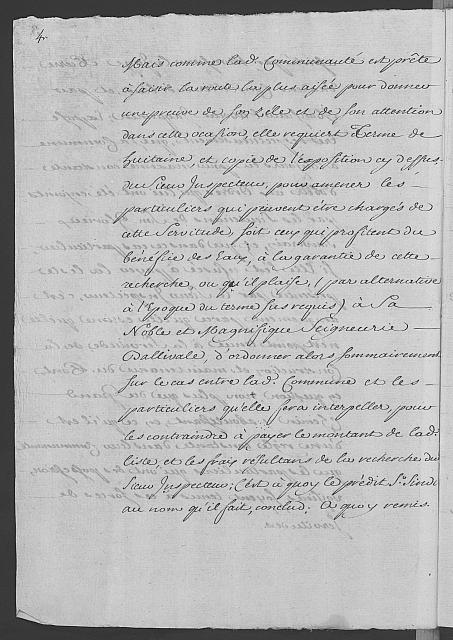 4.
Mais comme lad. Communauté est prête
à saisir la voute la plus aisée pour donner
une preuve de son Zelle et de son attention
dans cette ocasion, elle requiert Terme de
huitaine et copie de l'exposition cy dessus
du Sieur Inspecteur, pour amener les
particuliers qui peuvent être chargés de
cette Servitude, soit ceux qui profitent du
bénéfice des Eaux, à la garantie de cette
recherche, ou qu'il plaise, (par alternative
à l'Epoque du terme sus requis) à Sa
Noble et Magnifique Seigneurie
Ballivale, d'ordonner alors sommairement
sur le cas entre lad. Commune et les
particuliers qu'elle fera interpeller, pour
les contraindre à payer le montant de lad.
liste, et les frais résultans de la recherche du
Sieur Inspecteur; C'est à quoy le prédit Sr. Sindi
au nom qu'il fait, conclud. A quoy remis.